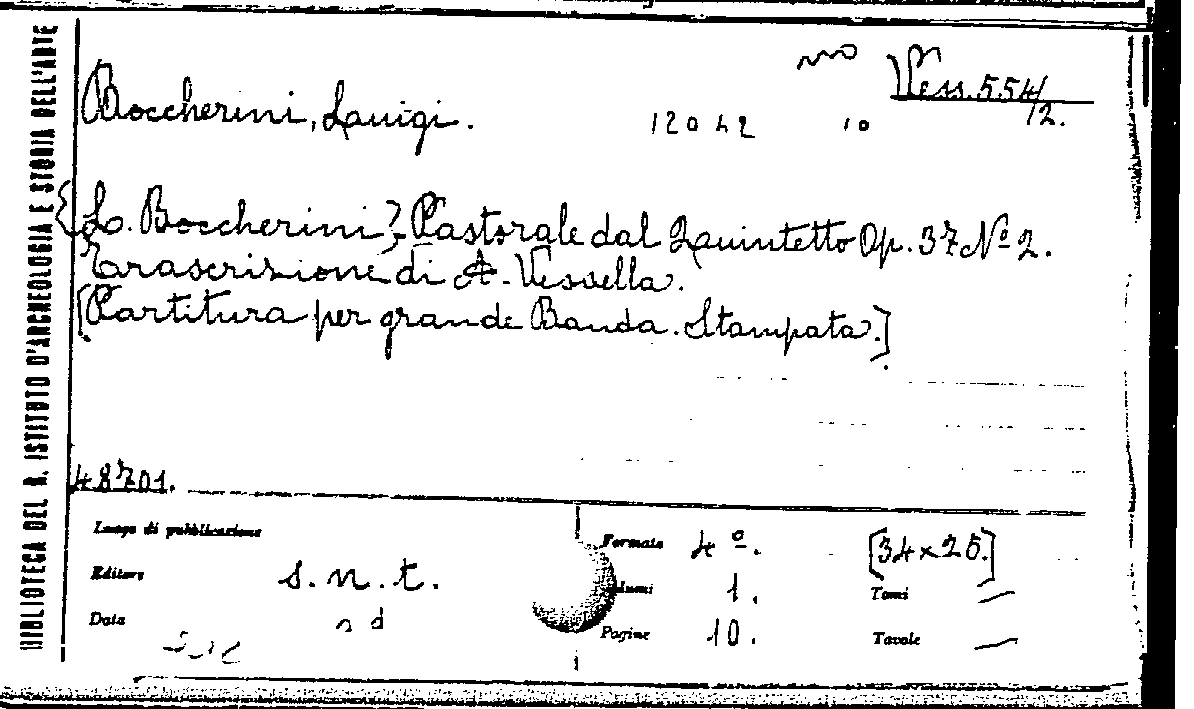 BIBLIOTECA DEL R. ISTITUTO D'ARCHEOLOGIA E STORIA DELL'ARTE
Vess. 554/2.
Boccherini, Luigi.
12042 10
[L. Boccherini] Pastorale dal Quintetto Op. 37 Nº 2.
Trascrizione di A. Vessella.
[Partitura per grande Banda. Stampata.]
48701.
Luogo di pubblicazione
Formato 4º. [34x25.]
Editore s. n. t.
Volumi 1. Tomi —
Data n d
Pagine 10. Tavole —